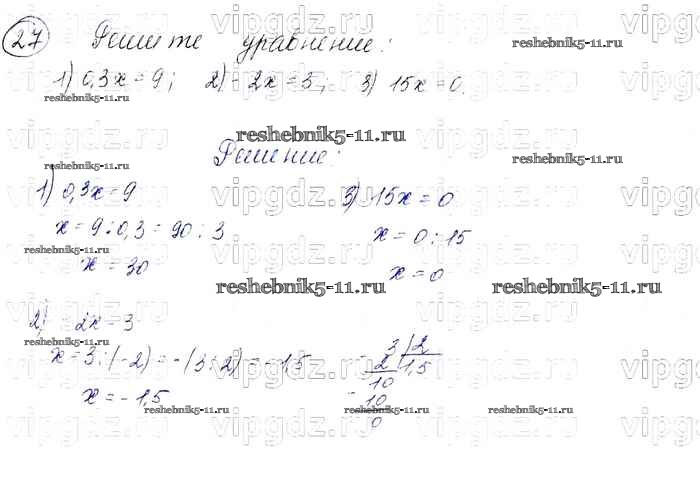 27 Решите уравнение:
1) 0,3x = 9; 2) -2x = 3; 3) 15x = 0.
Решение:
1) 0,3x = 9
x = 9 : 0,3 = 90 : 3
x = 30
2) -2x = 3
x = 3 : (-2) = -(3 : 2) = -1,5
x = -1,5
3) 15x = 0
x = 0 : 15
x = 0
3 | 2
2 | 1,5
10
10
0
vipgdz.ru
reshebnik5-11.ru